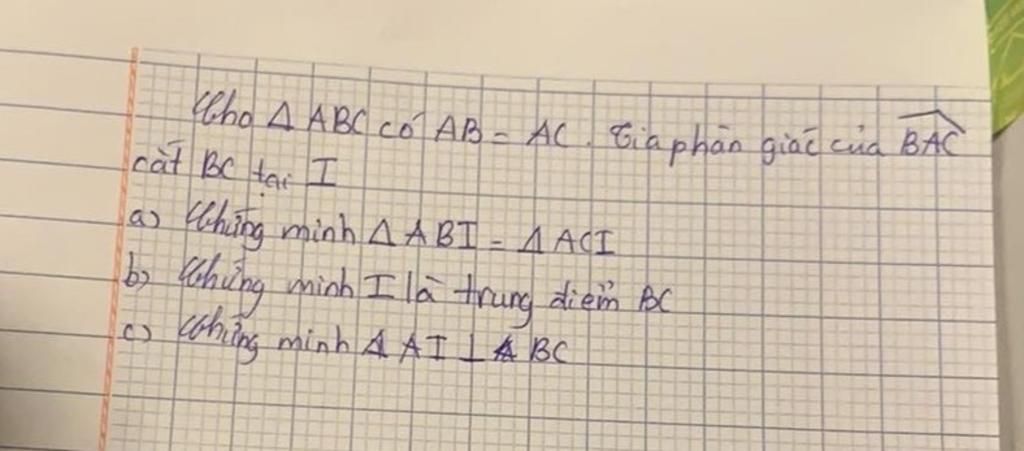 Cho Δ ABC có AB = AC. Tia phân giác của BAC
cắt BC tại I
a) Chứng minh Δ ABI = Δ ACI
b) Chứng minh I là trung điểm BC
c) Chứng minh AI ⊥ BC